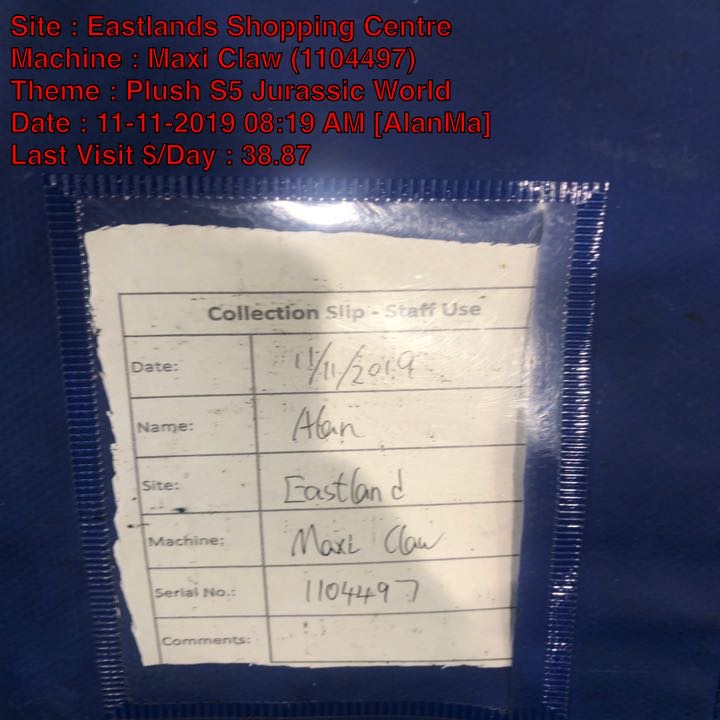 Site : Eastlands Shopping Centre
Machine : Maxi Claw (1104497)
Theme : Plush S5 Jurassic World
Date : 11-11-2019 08:19 AM [AlanMa]
Last Visit $/Day : 38.87
Collection Slip - Staff Use
Date: 11/11/2019
Name: Alan
Site: Eastland
Machine: Maxi Claw
Serial No.: 1104497
Comments: